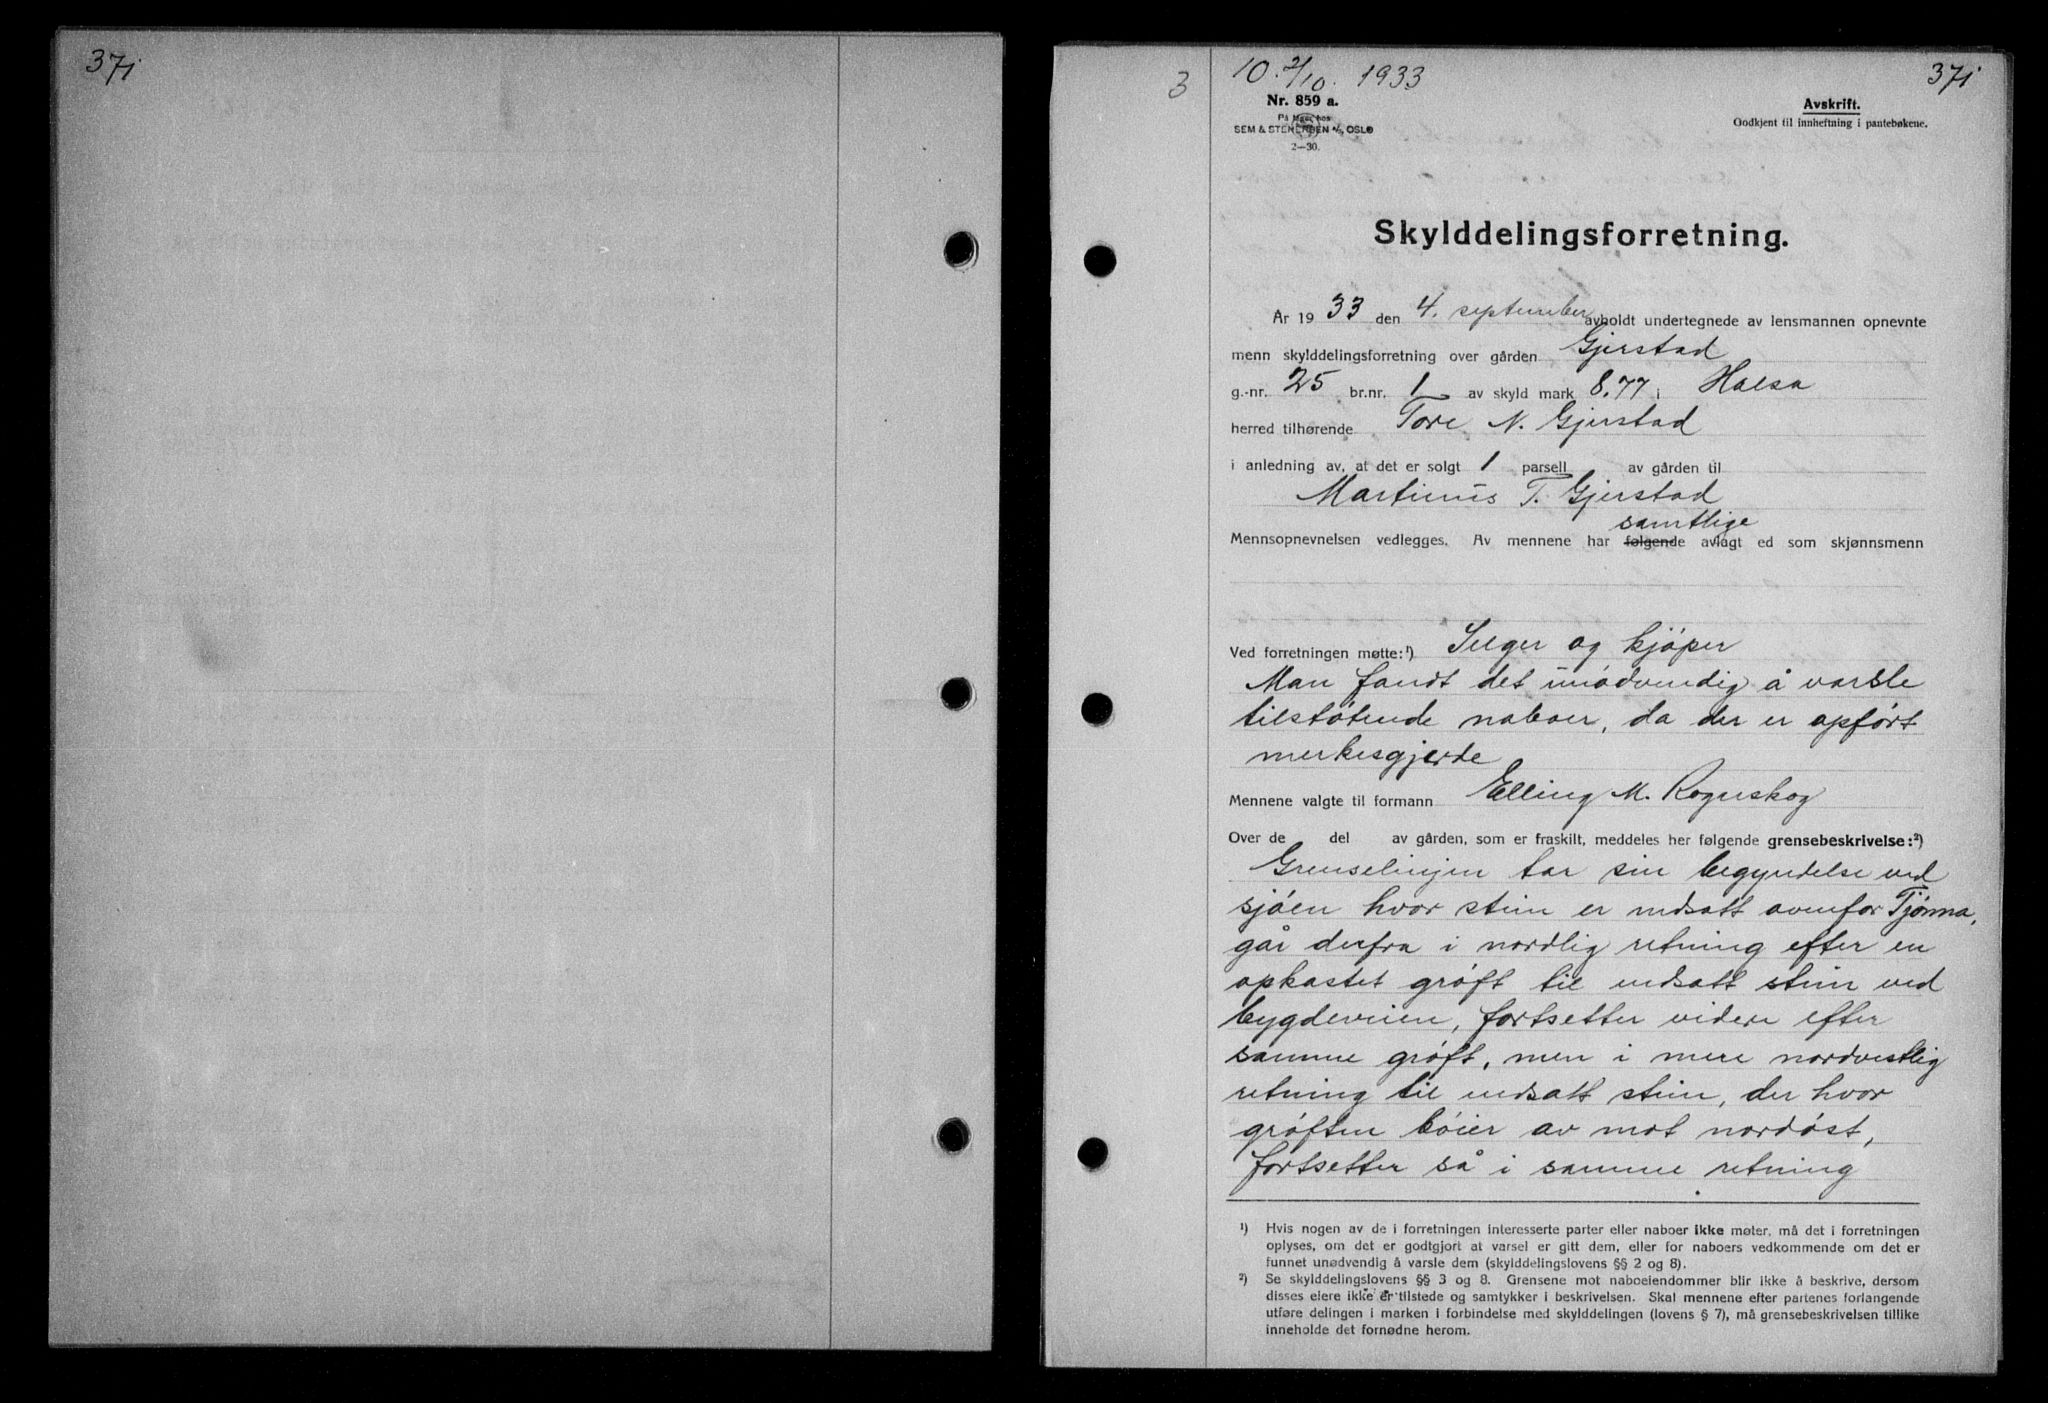 371
3
10. 2/10. 1933
371
Nr. 859 a.
På lager hos
SEM & STENERSEN A/S, OSLO
2—30.
Avskrift.
Godkjent til innheftning i pantebøkene.
Skylddelingsforretning.
År 1933 den 4. september avholdt undertegnede av lensmannen opnevnte
menn skylddelingsforretning over gården Gjerstad
g.-nr. 25 br.nr. 1 av skyld mark 8.77 i Halsa
herred tilhørende Tore N. Gjerstad
i anledning av, at det er solgt 1 parsell av gården til
Martinus T. Gjerstad
samtlige
Mennsopnevnelsen vedlegges. Av mennene har følgende avlagt ed som skjønnsmenn
Ved forretningen møtte:¹) Selger og kjøper
Man fandt det unødvendig å varsle
tilstøtende naboer, da der er opført
merkesgjerde
Mennene valgte til formann Elling M. Rognskog
Over de del av gården, som er fraskilt, meddeles her følgende grensebeskrivelse:²)
Grenselinjen tar sin begyndelse ved
sjøen hvor sten er nedsatt ovenfor Tjønna,
går derfra i nordlig retning efter en
opkastet grøft til nedsatt sten ved
bygdeveien, fortsetter videre efter
samme grøft, men i mere nordvestlig
retning til nedsatt sten, der hvor
grøften bøier av mot nordøst,
fortsetter så i samme retning
¹) Hvis nogen av de i forretningen interesserte parter eller naboer ikke møter, må det i forretningen
oplyses, om det er godtgjort at varsel er gitt dem, eller for naboers vedkommende om det er
funnet unødvendig å varsle dem (skylddelingslovens §§ 2 og 8).
²) Se skylddelingslovens §§ 3 og 8. Grensene mot naboeiendommer blir ikke å beskrive, dersom
disses eiere ikke er tilstede og samtykker i beskrivelsen. Skal mennene efter partenes forlangende
utføre delingen i marken i forbindelse med skylddelingen (lovens § 7), må grensebeskrivelsen tillike
inneholde det fornødne herom.